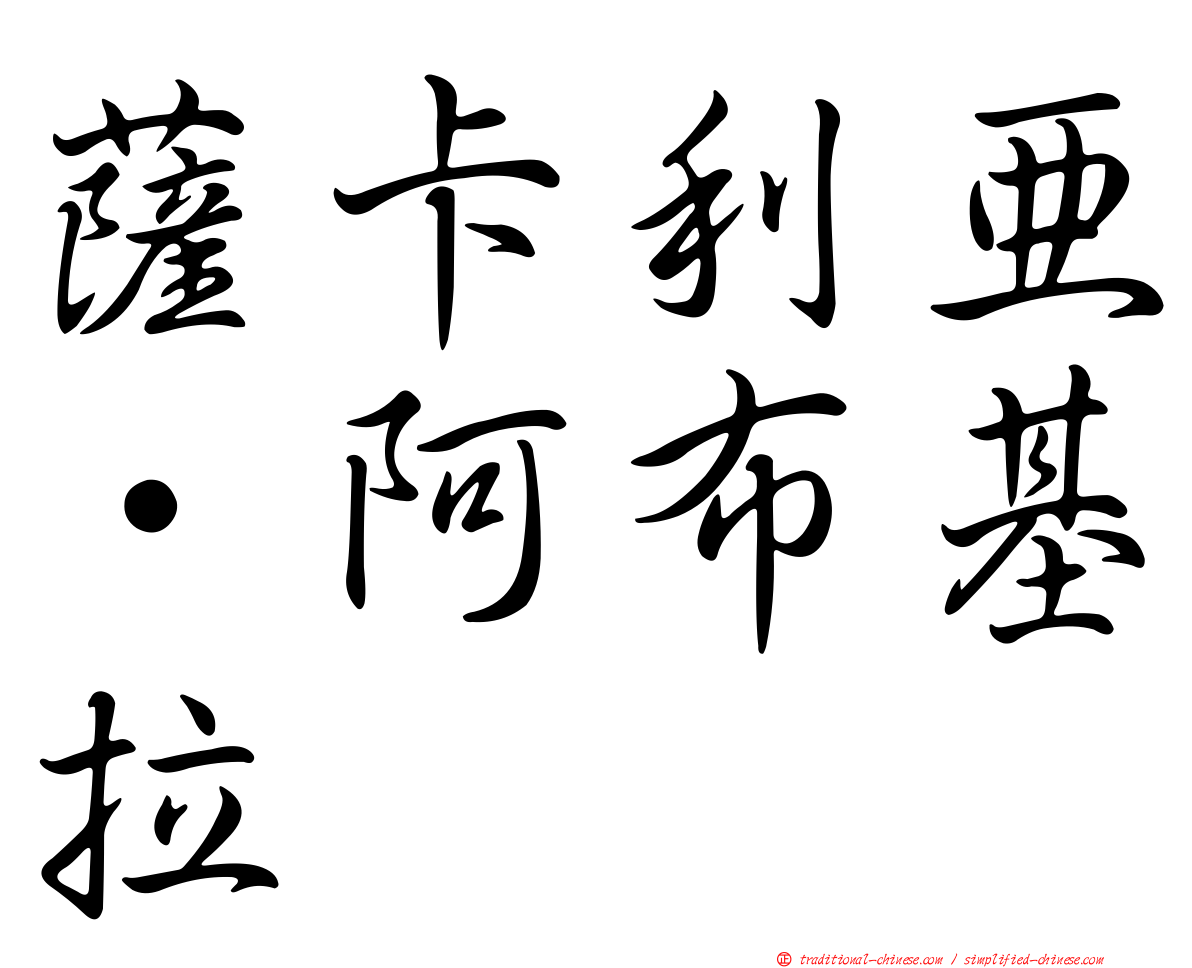 薩卡利亞
·阿布基
拉
㊣ traditional-chinese.com / simplified-chinese.com